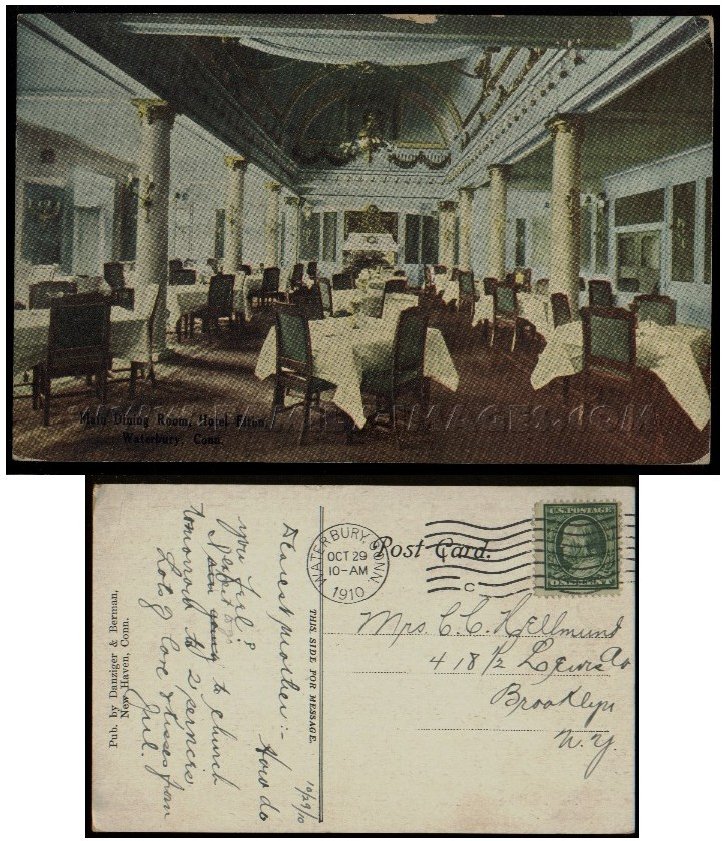 Main Dining Room, Hotel Elton,
Waterbury, Conn.
Pub. by Danziger & Berman,
New Haven, Conn.
10/29/10
Dearest Mother:-
How do
you feel?
I expect to go
I am going to church
tomorrow to 2 services
Lots of Love & Kisses from
Jul.
THIS SIDE FOR MESSAGE.
WATERBURY, CONN.
OCT 29
10-AM
1910
C
Post Card.
U.S. POSTAGE
ONE CENT
Mrs. C. C. Hellmund
418½ Lewis Av
Brooklyn
N.Y.